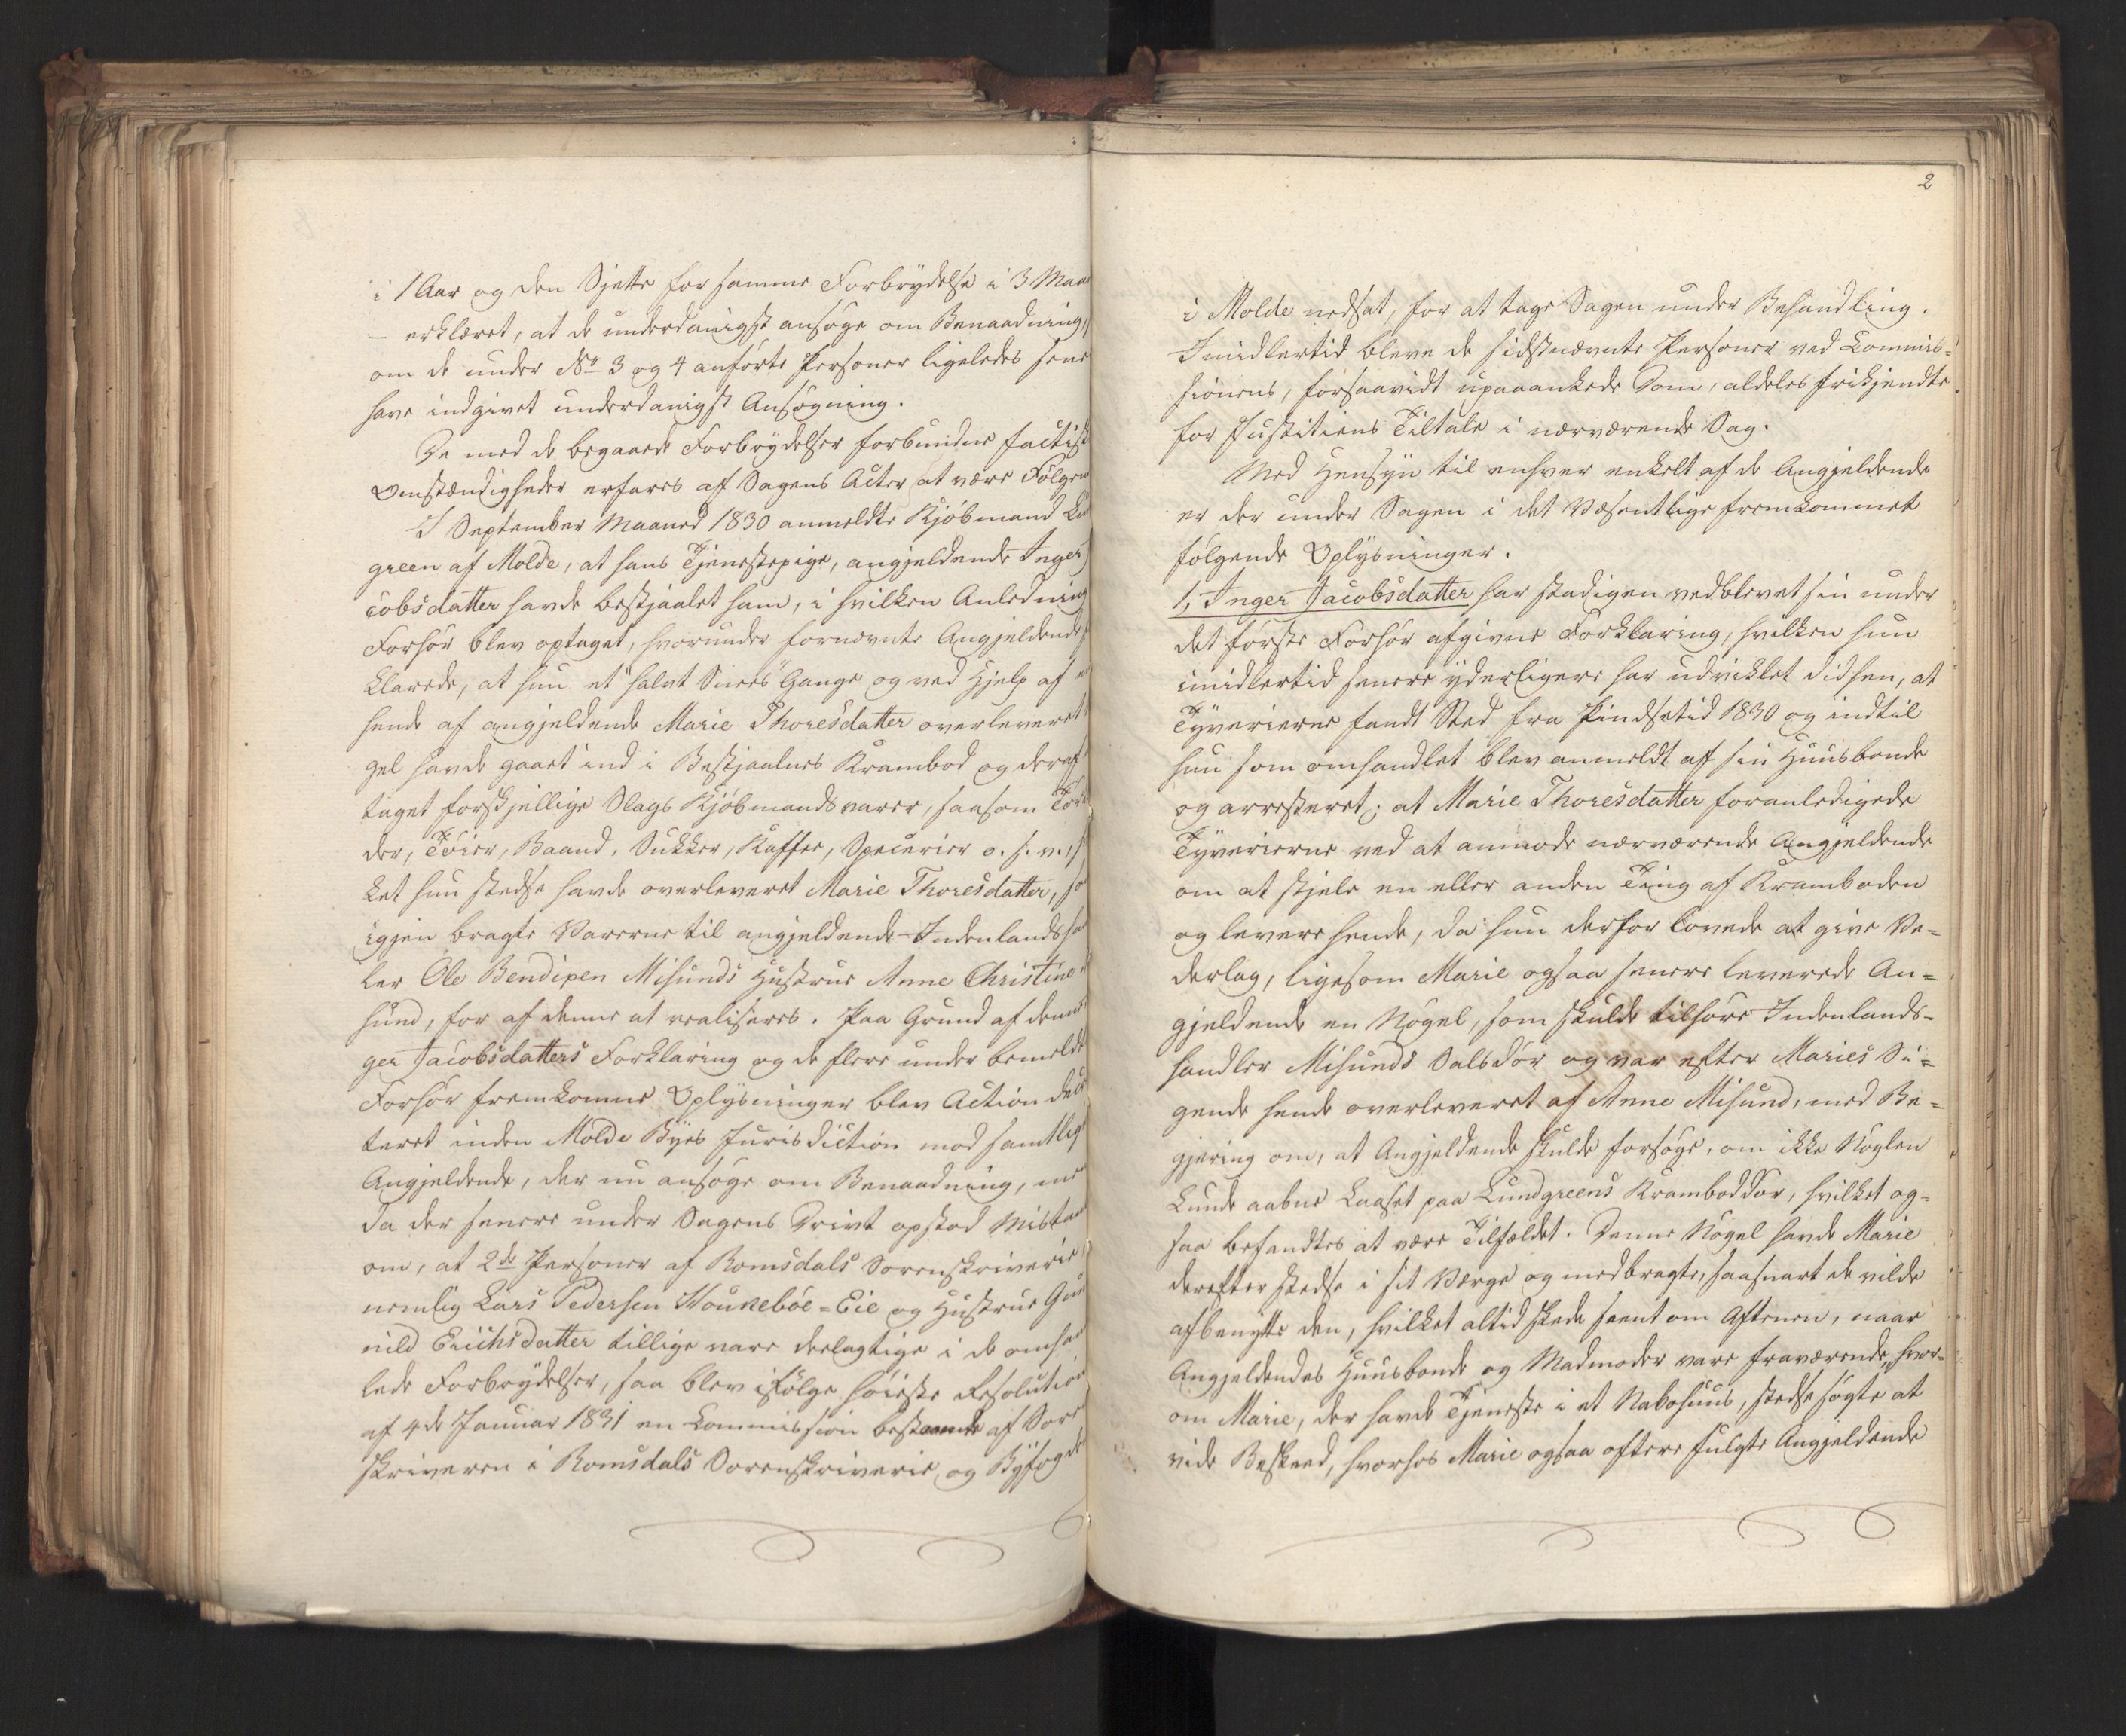 i 1 Aar og den Sjette for samme Forbrydelse i 3 Maa
– erklæret, at de underdanigst ansøge om Benaadning,
om de under No 3 og 4 anførte Personer ligeledes sene
have indgivet underdanigst Ansøgning.
De med de begaaede Forbrydelser forbundne factisk
Omstændigheder erfares af Sagens Acter at være Følgen
I September Maaned 1830 anmeldte Kjøbmand Lu
green af Molde, at hans Tjenestepige, angjeldende Inger
cobsdatter havde bestjaalet ham, i hvilken Anledning
Forhør blev optaget, hvorunder fornævnte Angjeldende
klarede, at hun et halvt Snees Gange og ved Hjelp af e
hende af angjeldende Marie Thoresdatter overleveret
gel havde gaaet ind i Bestjaalnes Krambod og deraf
taget forskjellige Slags Kjøbmandsvarer, saasom Tør
der, Tøier, Baand, Sukker, Kaffee, Specerier o. s. v.,
ket hun stedse havde overleveret Marie Thoresdatter, so
igjen bragte Varerne til angjeldende Indenlandsha
ler Ole Bendixen Misunds Hustrue Anne Christine
sund, for af denne at realiseres. Paa Grund af denne
ger Jacobsdatters Forklaring og de flere under bemeldte
Forhør fremkomne Oplysninger blev Action dec
teret inden Molde Byes Jurisdiction mod samtlig
Angjeldende, der nu ansøge om Benaadning, me
da der senere under Sagens Drivt opstod Mistan
om, at 2de Personer af Romsdals Sorenskriverie,
nemlig Lars Pedersen Houneböe-Eie og Hustrue Gu
nild Erichsdatter tillige vare deelagtige i de omha
lede Forbrydelser, saa blev ifølge høieste Resolution
af 4de Januar 1831 en Commission bestaaende af Sore
skriveren i Romsdals Sorenskriverie og Byfoged
2
i Molde nedsat, for at tage Sagen under Behandling.
Imidlertid bleve de sidstnævnte Personer ved Commis=
sionens, forsaavidt upaaankede Dom, aldeles frikjendte
for Justitiens Tiltale i nærværende Sag.
Med Hensyn til enhver enkelt af de Angjeldende
er der under Sagen i det Væsentlige fremkommet
følgende Oplysninger.
1, Inger Jacobsdatter har stadigen vedblevet sin under
det første Forhør afgivne Forklaring, hvilken hun
imidlertid senere yderligere har udviklet didhen, at
Tyverierne fandt Sted fra Pindsetid 1830 og indtil
hun som omhandlet blev anmeldt af sin Huusbonde
og arresteret; at Marie Thoresdatter foranledigede
Tyverierne ved at anmode nærværende Angjeldende
om at stjele en eller anden Ting af Kramboden
og levere hende, da hun derfor lovede at give Ve=
derlag, ligesom Marie ogsaa senere leverede An=
gjeldende en Nøgel, som skulde tilhøre Indenlands-
handler Misunds Salsdør og var efter Maries Si=
gende hende overleveret af Anne Misund, med Be=
gjering om, at Angjeldende skulde forsøge, om ikke Nøglen
kunde aabne Laaset paa Lundgreens Kramboddør, hvilket og=
saa befandtes at være Tilfældet. Denne Nøgel havde Marie
derefter stedse i sit Værge og medbragte, saasnart de vilde
afbenytte den, hvilket altid skede seent om Aftenen, naar
Angjeldendes Huusbonde og Madmoder vare fraværende, hvor=
om Marie, der havde Tjeneste i et Nabohuus, stedse søgte at
vide Beskeed, hvorhos Marie ogsaa oftere fulgte Angjeldende